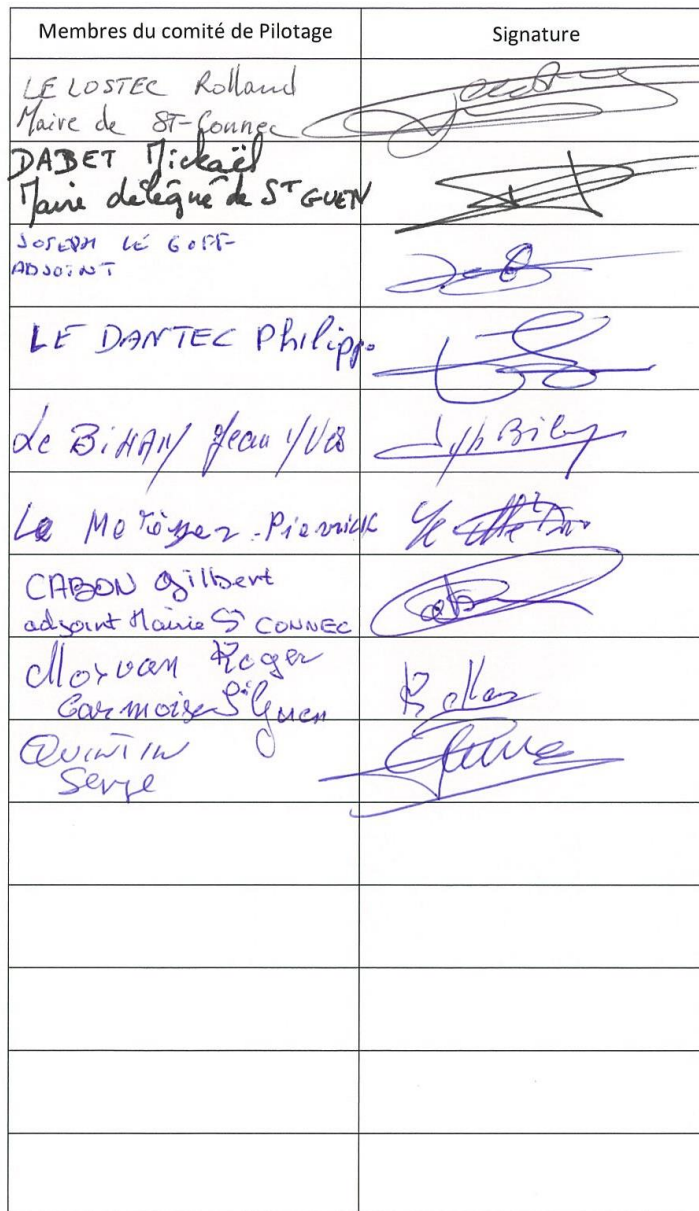 Membres du comité de Pilotage
Signature
LE LOSTEC Rolland
Maire de ST-Connec
DABET Mickaël
Maire délégué de ST GUEN
JOSEPH LE GOFF
ADJOINT
LE DANTEC Philippe
Le BIHAN Jean YVES
Le Pierrick
CABON Gilbert
adjoint Mairie ST CONNEC
Morvan Roger
St Guen
QUINTIN
Serge